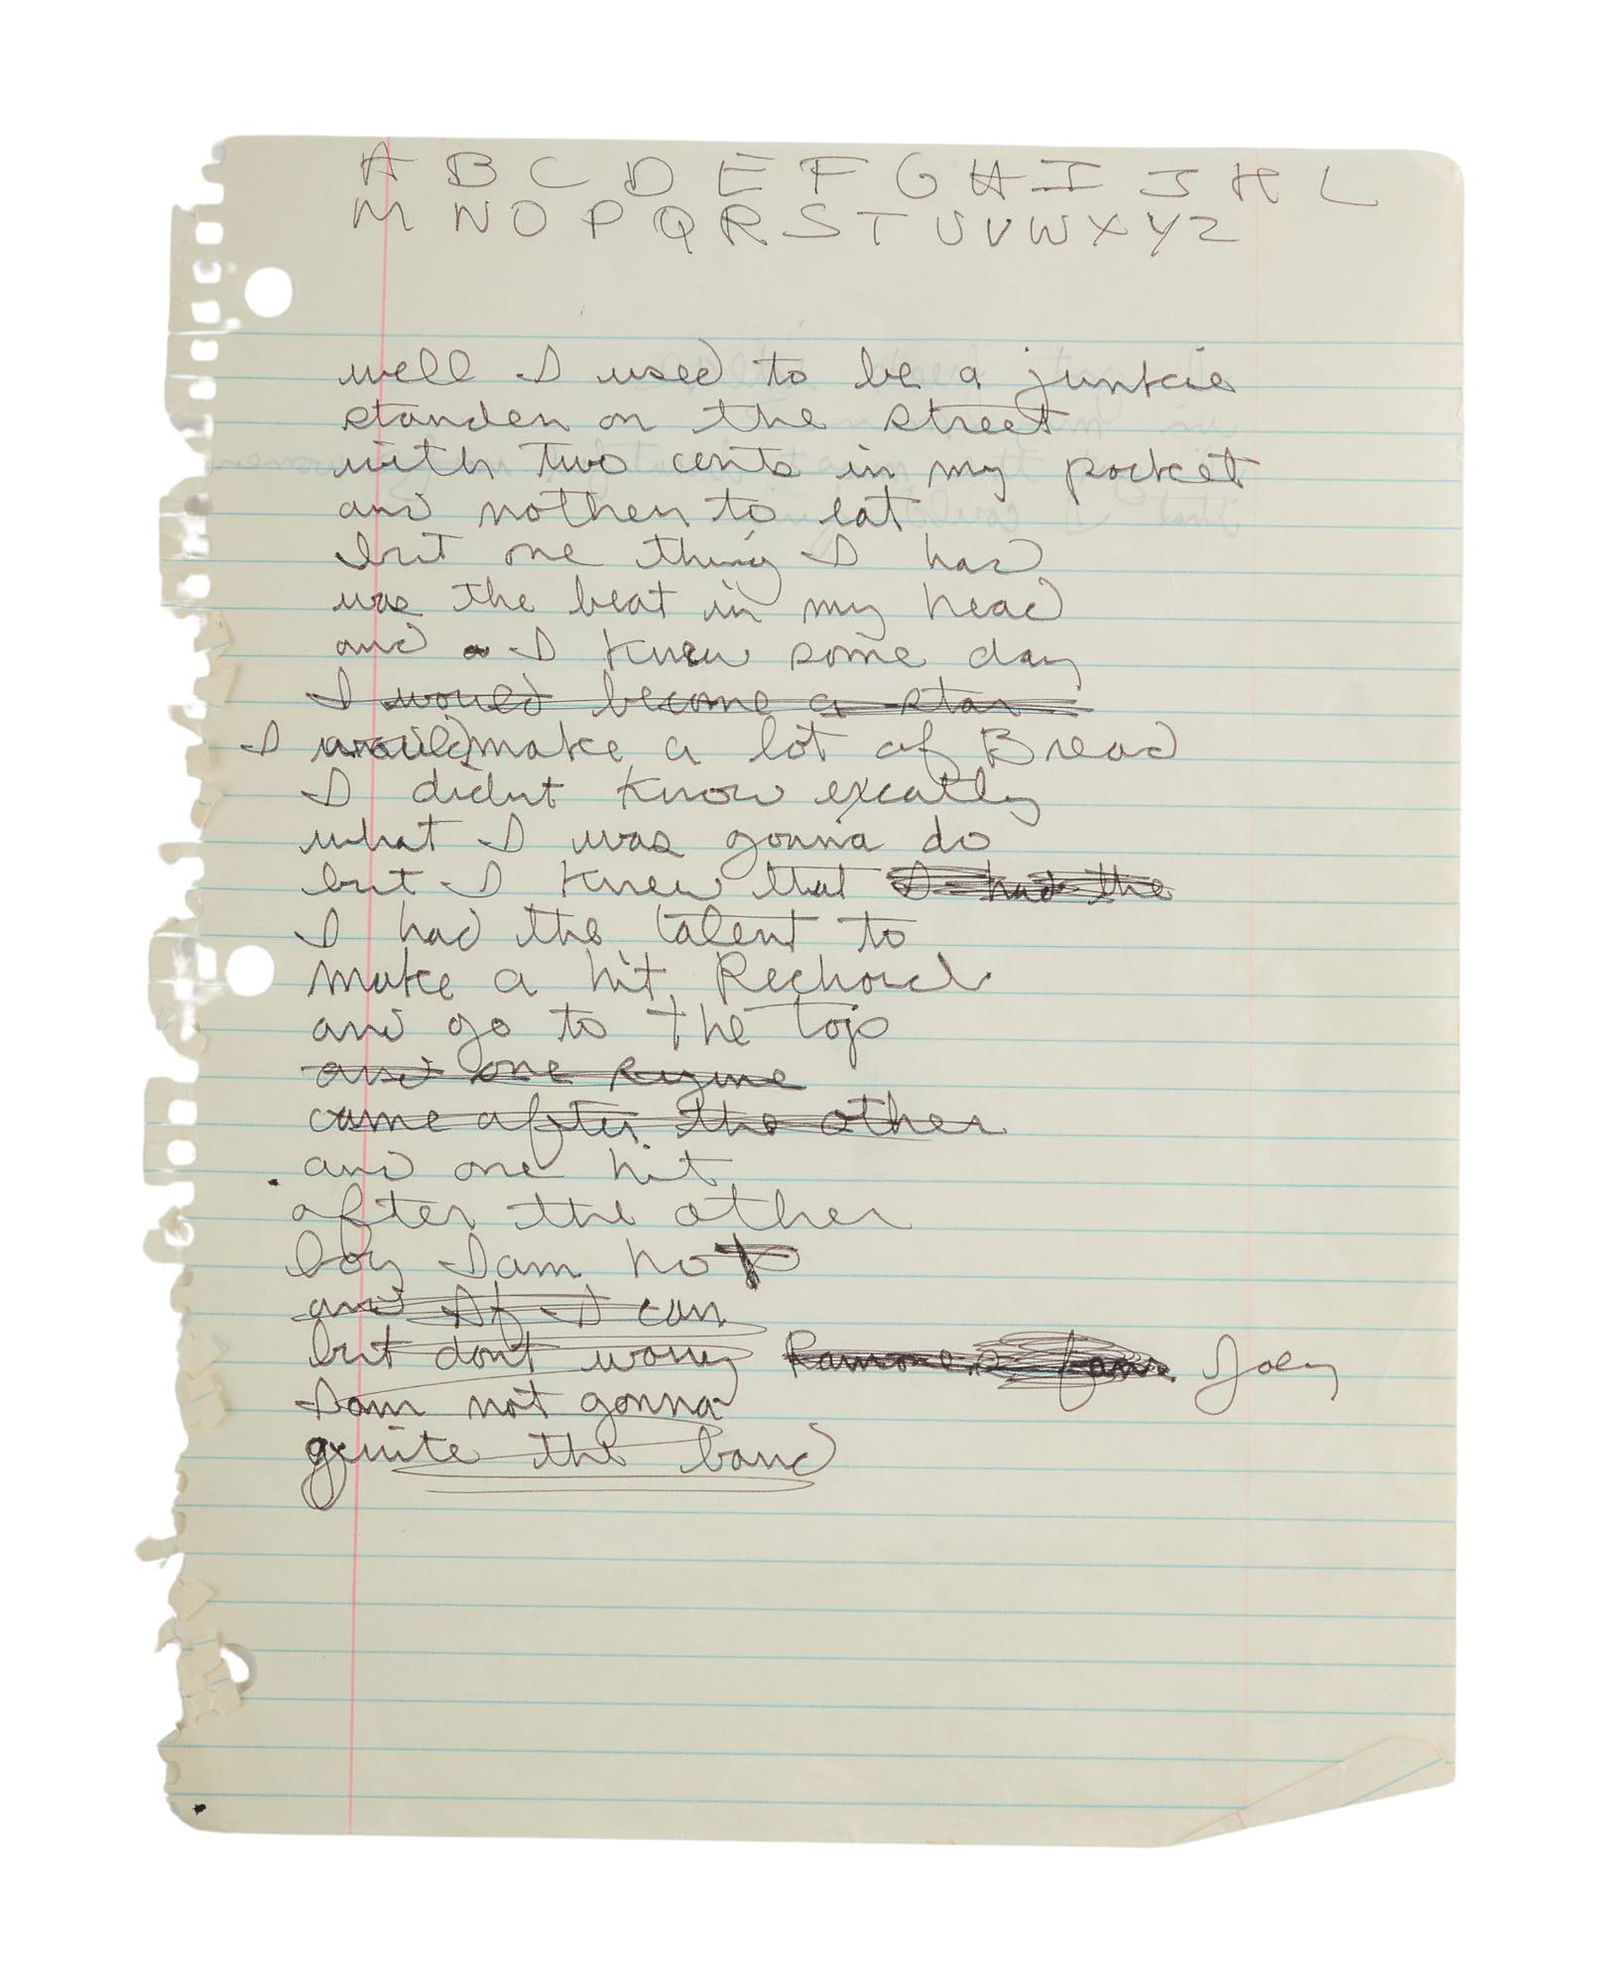 A B C D E F G H I J K L
M N O P Q R S T U V W X Y Z
well I used to be a junkie
standen on the street
with two cents in my pocket
and nothen to eat
but one thing I had
was the beat in my head
and a I knew some day
I would become a star
I would make a lot of Bread
I didnt know excatly
what I was gonna do
but I knew that I had the
I had the talent to
make a hit Rechord
and go to the top
and one ryme
came after the other
and one hit
after the other
boy I am hot
and If I can
but dont worry Ramones fans Joey
I am not gonna
quite the band